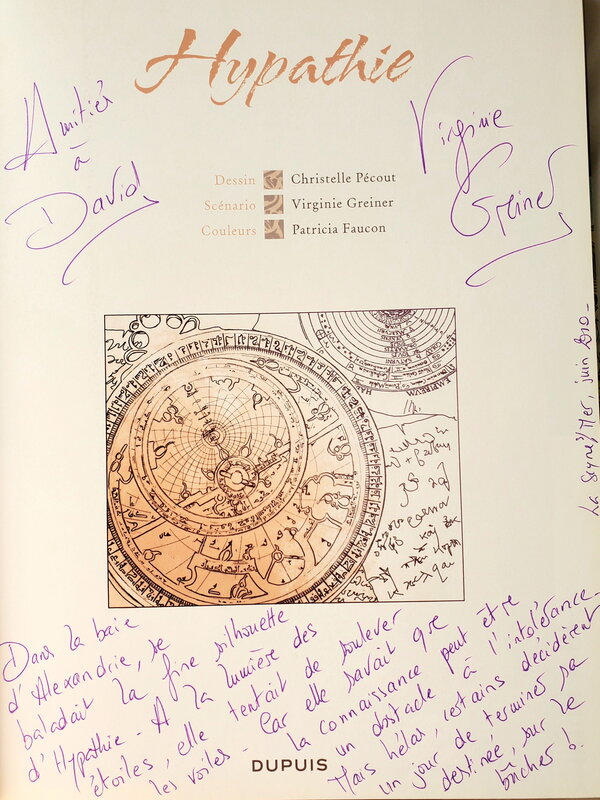 Hypathie
Amitiés
à
David
Virginie
Greiner
Dessin Christelle Pécout
Scénario Virginie Greiner
Couleurs Patricia Faucon
La Seyne/Mer, juin 2010-
EMPIREVM
Dans la baie
d'Alexandrie, se
baladait la fine silhouette
d'Hypathie - A la lumière des
étoiles, elle tentait de soulever
les voiles - Car elle savait que
la connaissance peut être
un obstacle à l'intolérance-
Mais hélas, certains décidèrent
un jour de terminer sa
destinée, sur le
bûcher !
DUPUIS